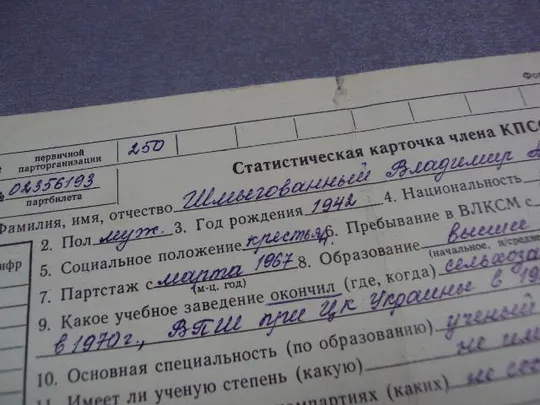 Фор
первичной
парторганизации 250
Статистическая карточка члена КПСС
№ 02356193
партбилета
Фамилия, имя, отчество Шмыгованный Владимир
2. Пол муж. 3. Год рождения 1942 4. Национальность
5. Социальное положение крестьян. 6. Пребывание в ВЛКСМ с
7. Партстаж с марта 1967 8. Образование высшее
(м-ц, год) (начальное, н/средне
9. Какое учебное заведение окончил (где, когда)
в 1970 г., ВПШ при ЦК Украины в 19
10. Основная специальность (по образованию) ученый
11. Имеет ли ученую степень (какую) не им
мпартиях (каких) не сос
ифр